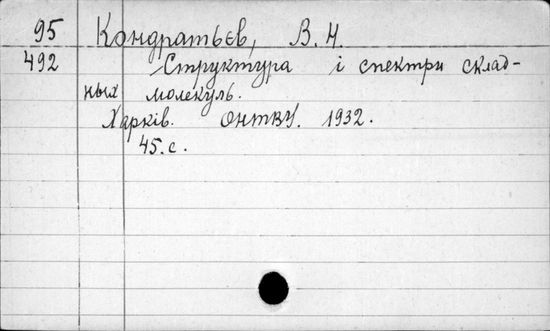 95 Кондратьєв, В.Н.
492 Структура і спектри склад-
них молекуль.
Харків. ОНТВУ. 1932.
45.с.